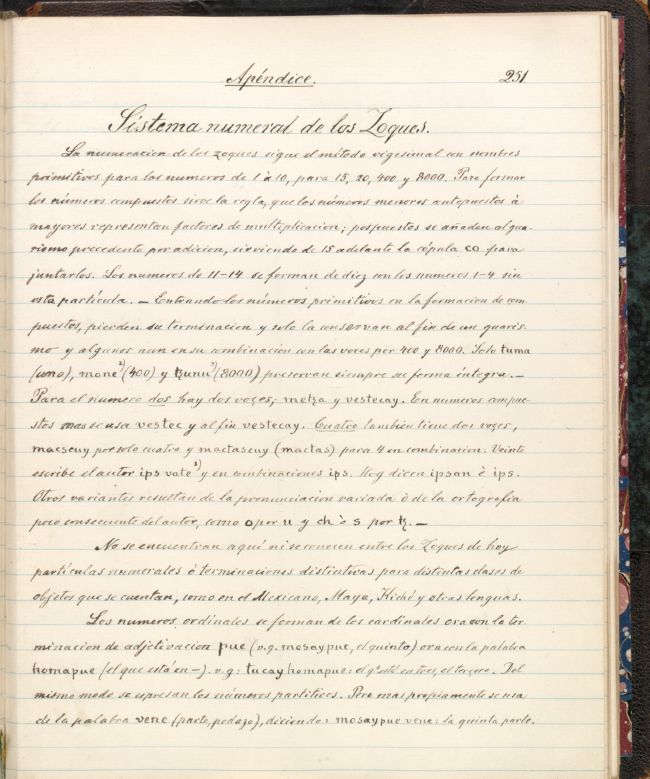 Apéndice.
251
Sistema numeral de los Zoques.
La numeracion de los zoques sigue el método vigesimal con nombres
primitivos para los numeros de 1 à 10, para 15, 20, 400 y 8000. Para formar
los números compuestos sirve la regla, que los números menores antepuestos à
mayores representan factores de multiplicacion; pospuestos se añaden al gua-
rismo precedente por adicion, sirviendo de 15 adelante la cópula co para
juntarlos. Los numeros de 11-14 se forman de diez con los numeros 1-4 sin
esta partícula. — Entrando los números primitivos en la formacion de com-
puestos, pierden su terminacion y solo la conservan al fin de un guaris-
mo y algunos aun en su combinacion con las voces por 400 y 8000. Solo tuma
(uno), mone²) (400) y tzunu³) (8000) preservan siempre su forma íntegra. —
Para el numero dos hay dos voces; metza y vestecay. En numeros compue-
stos mas se usa vestec y al fin vestecay. Cuatro tambien tiene dos voces,
macscuy por solo cuatro y mactascuy (mactas) para 4 en combinacion. Veinte
escribe el autor ips vate¹) y en combinaciones ips. Hoy dicen ipsan è ips.
Otras variantes resultan de la pronunciacion variada ò de la ortografia
poco consecuente del autor, como o por u y ch ò s por tz. —
No se encuentran aquí ni se conocen entre los Zoques de hoy
partículas numerales ò terminaciones distintivas para distintas clases de
objetos que se cuentan, como en el Mexicano, Maya, Kiché y otras lenguas.
Los numeros ordinales se forman de los cardinales ora con la ter-
minacion de adjetivacion pue (v.g. mosay pue, el quinto) ora con la palabra
homapue (el que está en —). v.g: tucay homapue: el qᵉ está en tres, el tercero. Del
mismo modo se espresan los números partitivos. Pero mas propiamente se usa
de la palabra vene (parte, pedazo), diciendo: mosay pue vene: la quinta parte.